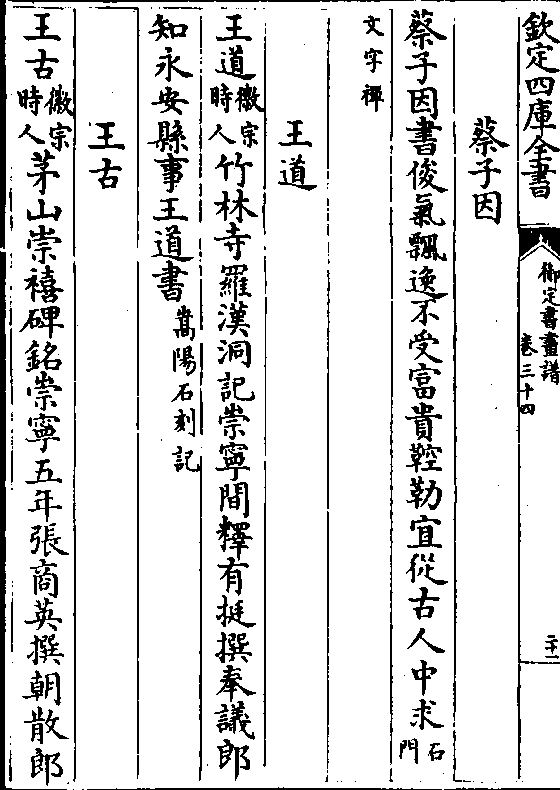 欽定四庫全書
御定書畫譜
卷三十四
二十一
蔡子因
蔡子因書俊氣飄逸不受富貴鞚勒宜從古人中求石門
文字禪
王道
王道徽宗時人竹林寺羅漢洞記崇寧間釋有挺撰奉議郎
知永安縣事王道書嵩陽石刻記
王古
王古徽宗時人茅山崇禧碑銘崇寧五年張商英撰朝散郎